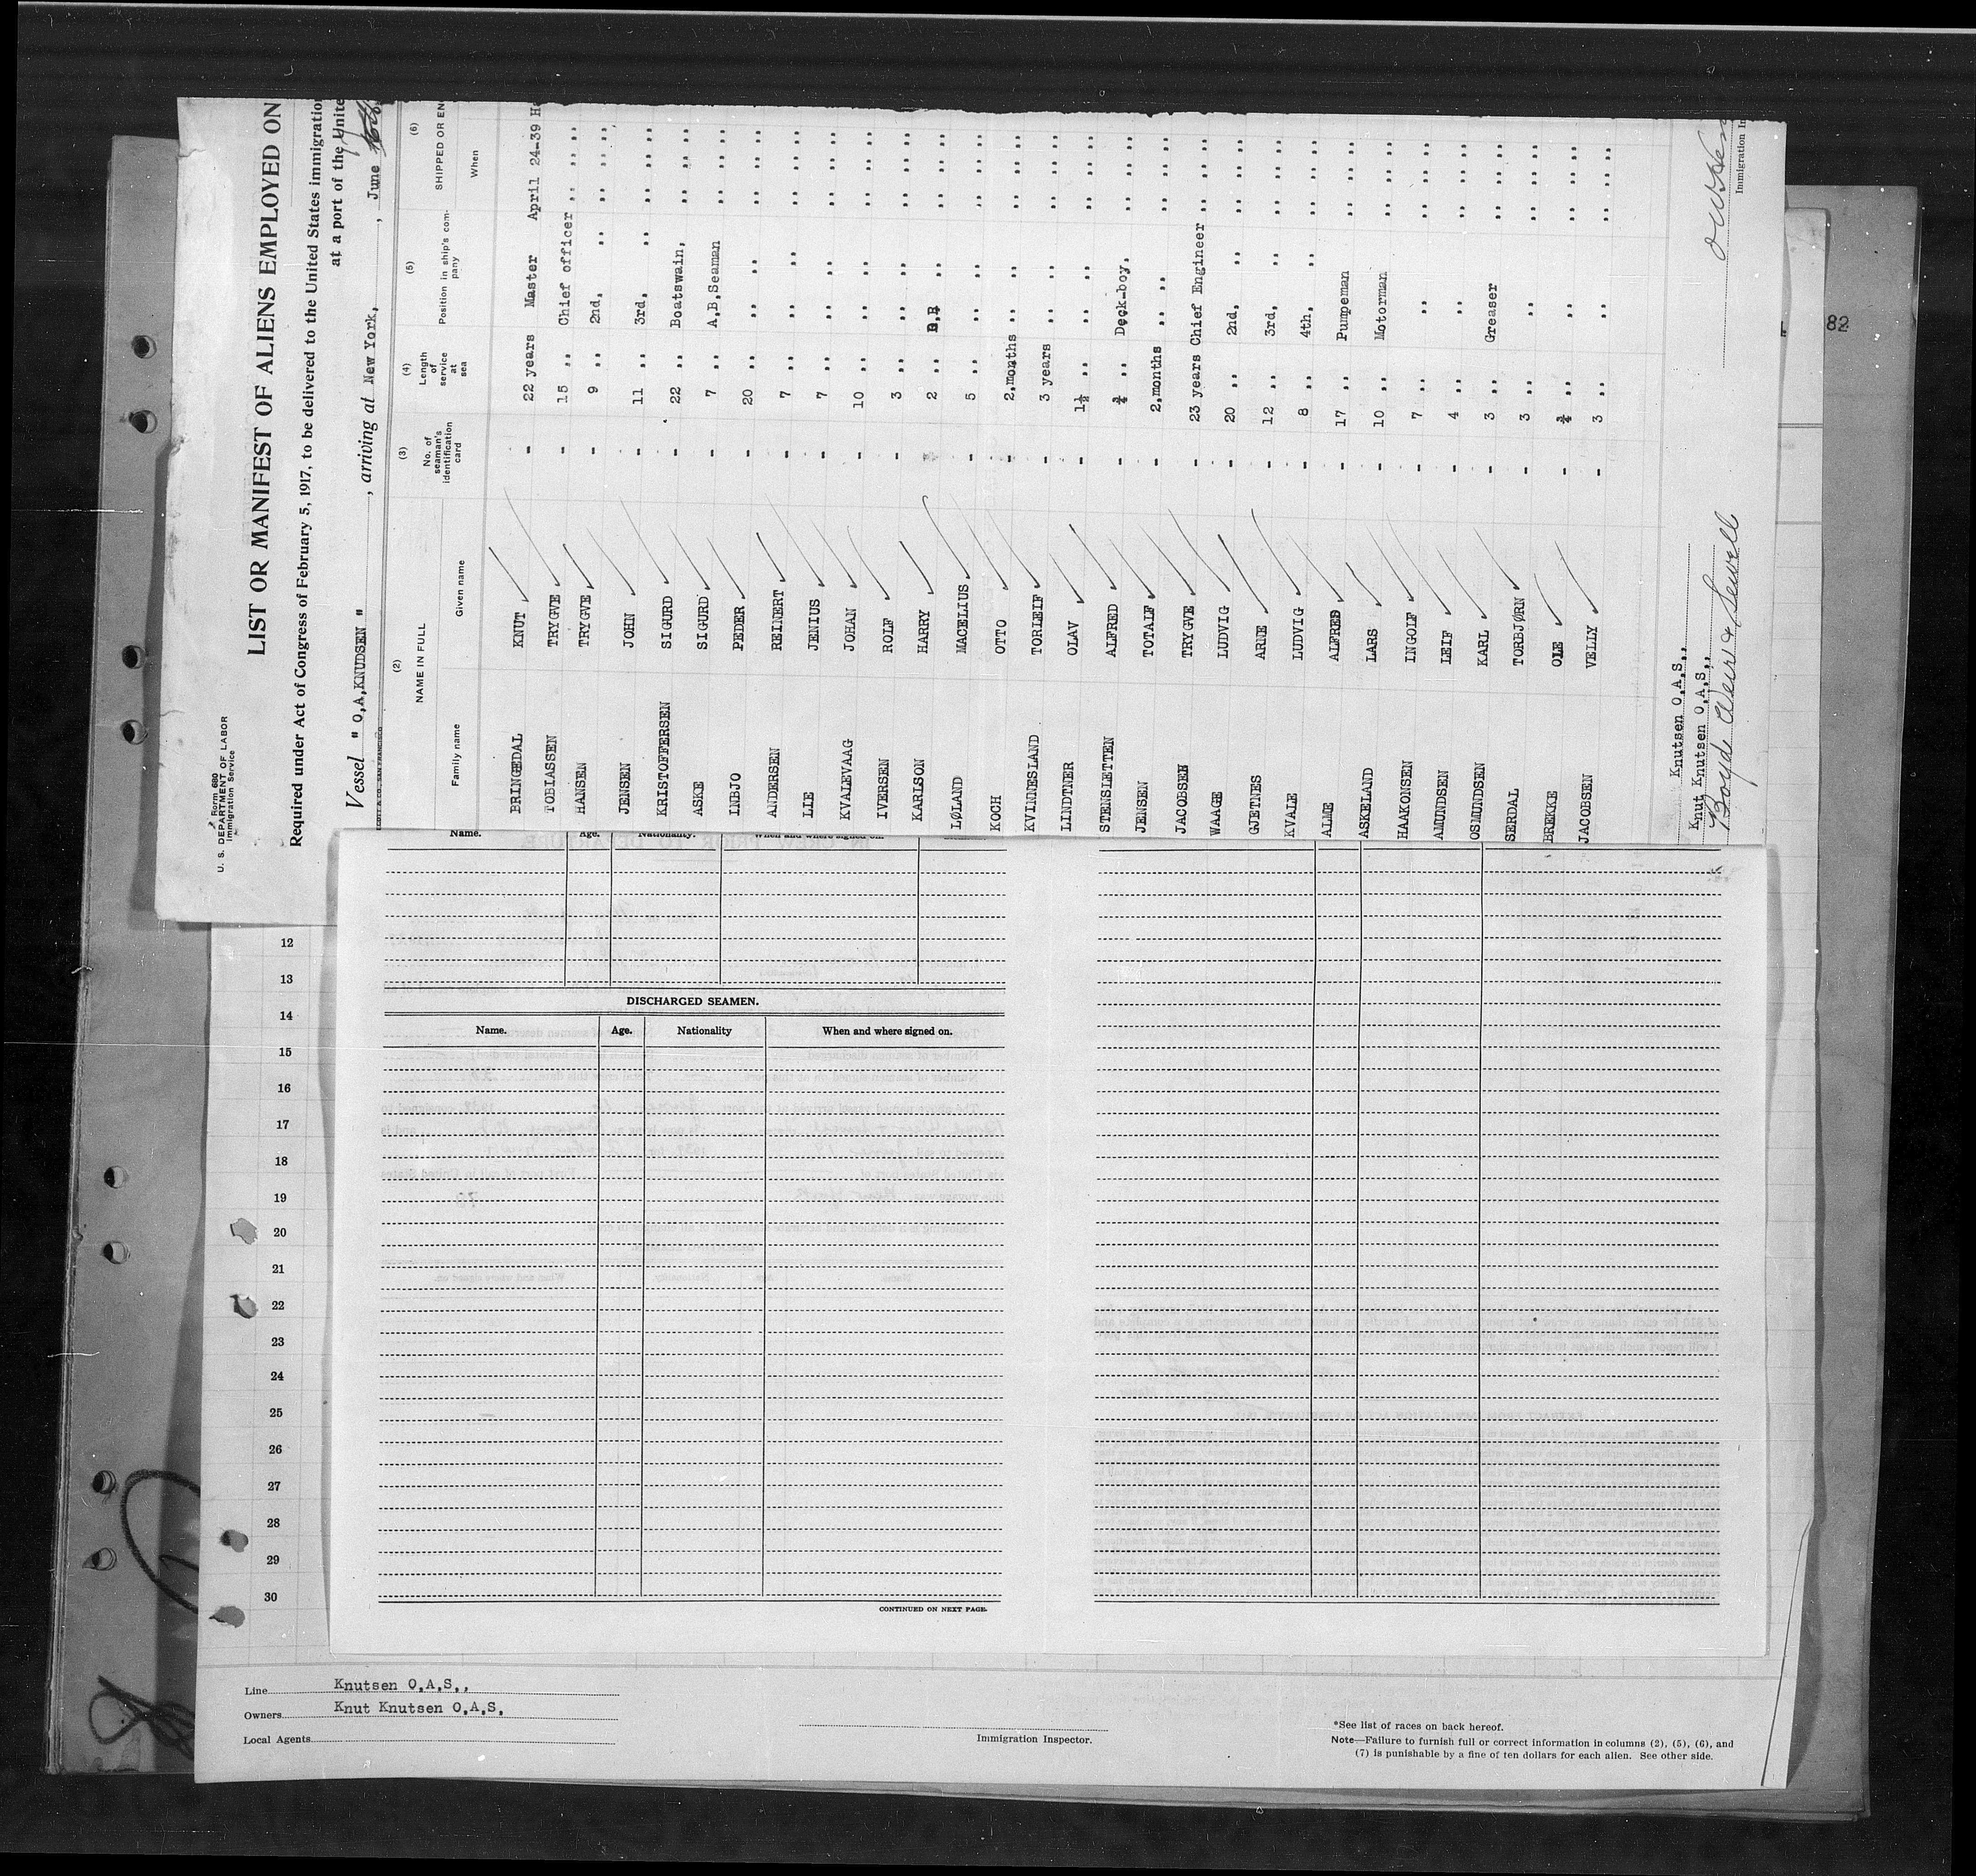 Form 680
U. S. DEPARTMENT OF LABOR
Immigration Service
LIST OR MANIFEST OF ALIENS EMPLOYED ON
Required under Act of Congress of February 5, 1917, to be delivered to the United States immigration
at a port of the Unite
Vessel " O,A,KNUDSEN " , arriving at New York, , June
(2) (3) (4) (5) (6)
NAME IN FULL No. of seaman's identification card Length of service at sea Position in ship's company SHIPPED OR EN
Family name Given name When
BRINGEDAL KNUT - 22 years Master April 24-39 H
TOBIASSEN TRYGVE - 15 ,, Chief officer ,, ,, ,,
HANSEN TRYGVE - 9 ,, 2nd, ,, ,, ,, ,,
JENSEN JOHN - 11 ,, 3rd, ,, ,, ,, ,, ,,
KRISTOFFERSEN SIGURD - 22 ,, Boatswain, ,, ,, ,, ,,
ASKE SIGURD - 7 ,, A,B,Seaman ,, ,, ,, ,,
INBJO PEDER - 20 ,, ,, ,, ,, ,, ,, ,,
ANDERSEN REINERT - 7 ,, ,, ,, ,, ,, ,, ,,
LIE JENIUS - 7 ,, ,, ,, ,, ,, ,, ,,
KVALEVAAG JOHAN - 10 ,, ,, ,, ,, ,, ,, ,,
IVERSEN ROLF - 3 ,, ,, ,, ,, ,, ,, ,,
KARLSON HARRY 2 ,, ,, ,, ,, ,, ,,
LØLAND MACELIUS - 5 ,, ,, ,, ,, ,, ,, ,,
KOCH OTTO - 2,months ,, ,, ,, ,, ,, ,,
KVINNESLAND TORLEIF - 3 years ,, ,, ,, ,, ,, ,,
LINDTNER OLAV - 1½ ,, ,, ,, ,, ,, ,, ,,
STENSLETTEN ALFRED - ¾ ,, Deck-boy, ,, ,, ,, ,,
JENSEN TOTALF - 2,months ,, ,, ,, ,, ,, ,,
JACOBSEN TRYGVE - 23 years Chief Engineer ,, ,, ,, ,,
WAAGE LUDVIG - 20 ,, 2nd, ,, ,, ,, ,, ,,
GJETNES ARNE - 12 ,, 3rd, ,, ,, ,, ,, ,,
KVALE LUDVIG - 8 ,, 4th, ,, ,, ,, ,, ,,
ALME ALFRED - 17 ,, Pumpeman ,, ,, ,, ,,
ASKELAND LARS - 10 ,, Motorman ,, ,, ,, ,,
HAAKONSEN INGOLF - 7 ,, ,, ,, ,, ,, ,,
AMUNDSEN LEIF - 4 ,, ,, ,, ,, ,, ,,
OSMUNDSEN KARL - 3 ,, Greaser ,, ,, ,, ,,
SERDAL TORBJØRN - 3 ,, ,, ,, ,, ,, ,,
BREKKE OLE - ¾ ,, ,, ,, ,, ,, ,,
JACOBSEN VELLY - 3 ,, ,, ,, ,, ,, ,,
Knutsen O,A,S,,
Knut Knutsen O,A,S,,
Boyd Weir & Sewell
Immigration In
82
Name. Age. Nationality. When and where signed on.
DISCHARGED SEAMEN.
Name. Age. Nationality When and where signed on.
12
13
14
15
16
17
18
19
20
21
22
23
24
25
26
27
28
29
30
CONTINUED ON NEXT PAGE.
Line Knutsen O,A,S,,
Owners Knut Knutsen O,A,S,
Local Agents
Immigration Inspector.
*See list of races on back hereof.
Note—Failure to furnish full or correct information in columns (2), (5), (6), and
(7) is punishable by a fine of ten dollars for each alien. See other side.